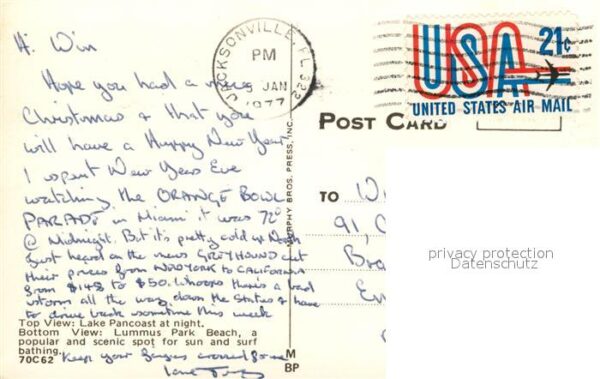 Hi Win
Hope you had a nice
Christmas & that you
will have a Happy New Year
I spent New Years Eve
watching the ORANGE BOWL
PARADE in Miami it was 72°
@ Midnight. But it's pretty cold up North
Just heard on the news GREYHOUND cut
their prices from NEW YORK to CALIFORNIA
from $148 to $50. Whoopee there's a bad
storm all the way down the States & have
to drive back sometime this week
Top View: Lake Pancoast at night.
Bottom View: Lummus Park Beach, a
popular and scenic spot for sun and surf
bathing.
70C62
Keep your fingers crossed for me
love
JACKSONVILLE, FL 322
PM
JAN
1977
MURPHY BROS. PRESS, INC.
M
BP
USA 21¢
UNITED STATES AIR MAIL
POST CARD
TO
91, C
Bra
privacy protection
Datenschutz